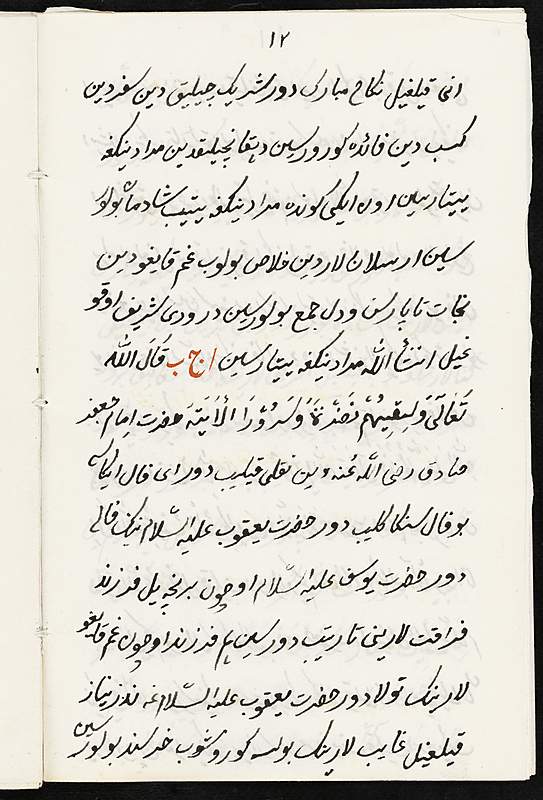 ۱۲
انی قیلغیل نکاح مبارک دور شریک چیلیق دین سفردین
کسب دین فائده کورورسین دهقانچیلیقدین مرادینکغه
ییتارسین اون ایکی کونده مرادینکغه ییتیب شادمان بولور
سین ارسلان لاردین خلاص بولوب غم قایغودین
نجات تاپارسن ودل جمع بولورسین درودی شریف اوقو
غیل انشأ الله مرادینکغه ییتارسین ا ج ب قَالَ الله
تَعَالَیٰ وَلَقِیهُمْ نَضْرَةً وَسُرُوْرًا اَلْاَیَتَه حضرت امام جعفر
صادق رضی الله عنه دین نقلی قیلیب دور ای فال ایکاسی
بو فال سنکا کلیب دور حضرت یعقوب علیه السّلام نینک فالی
دور حضرت یوسف علیه السّلام اوچون برنچه ییل فرزند
فراقت لارینی تارتیب دور سین هم فرزند اوچون غم قایغو
لارینک تولا دور حضرت یعقوب علیه السّلام غه نذر نیاز
قیلغیل غایب لارینک بولسه کوروشوب خرسند بولورسین